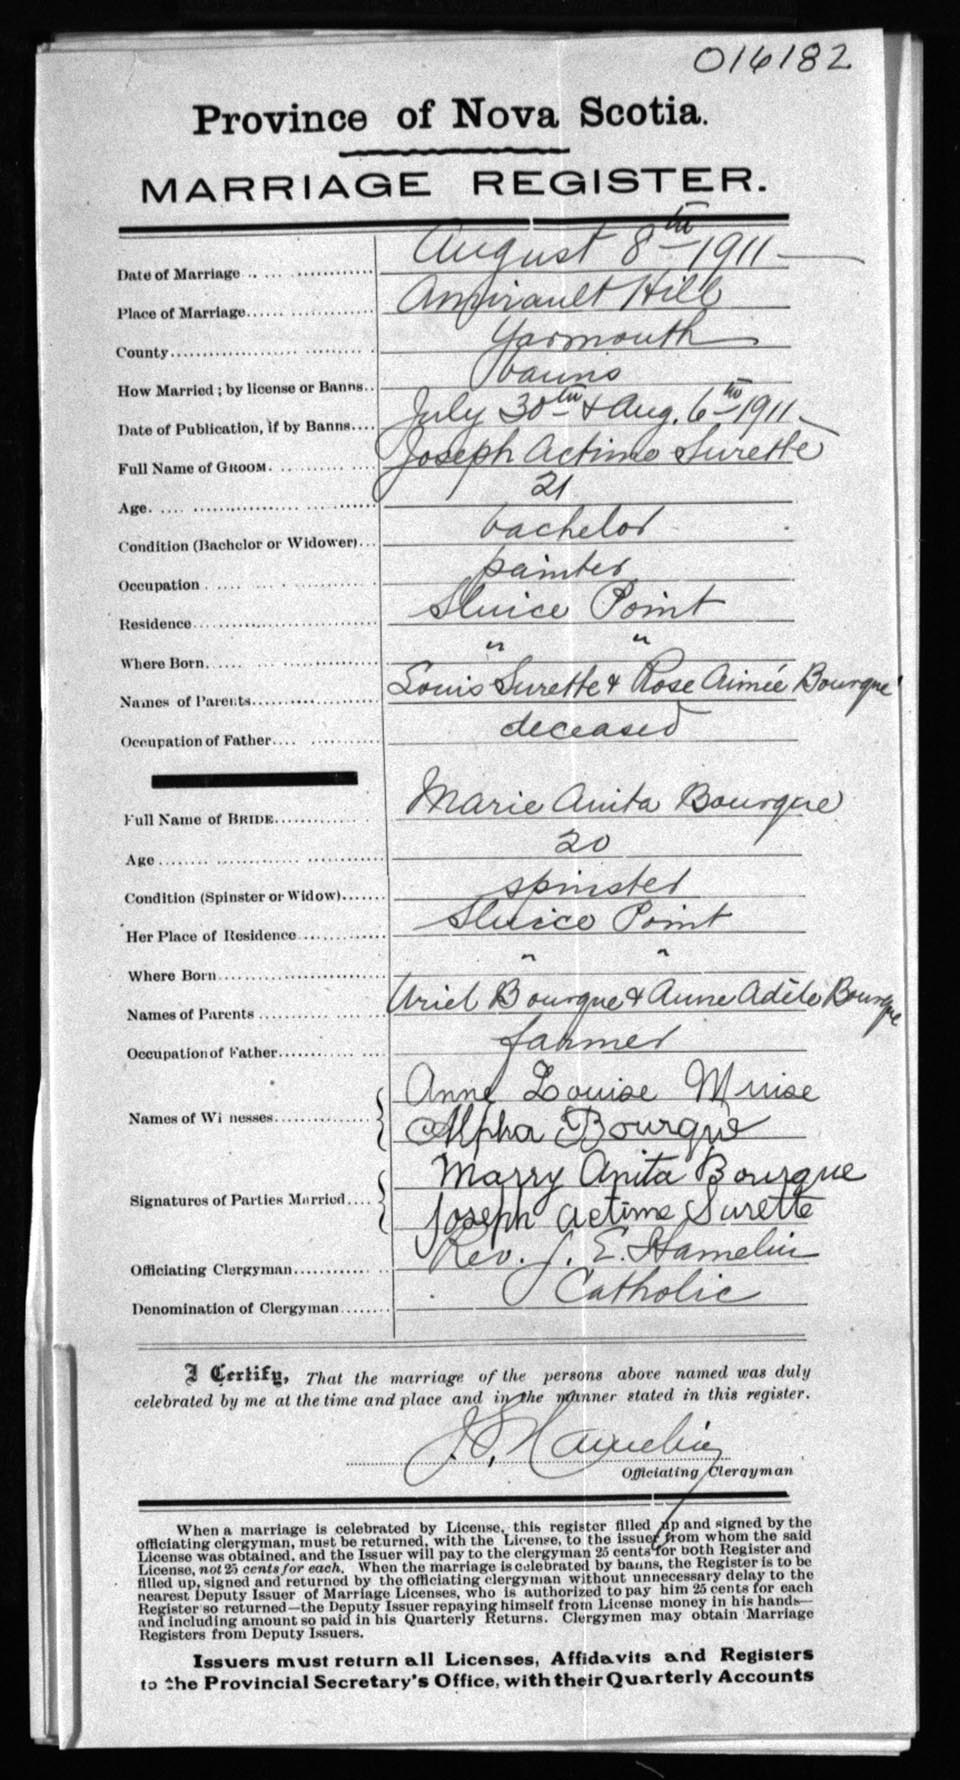 016182
Province of Nova Scotia.
MARRIAGE REGISTER.
Date of Marriage .. August 8th 1911
Place of Marriage...... Amirault Hill
County...... Yarmouth
How Married; by license or Banns.. banns
Date of Publication, if by Banns.... July 30th & Aug. 6th 1911
Full Name of GROOM. Joseph Actime Surette
Age. 21
Condition (Bachelor or Widower)... bachelor
Occupation painter
Residence...... Sluice Point
Where Born..... " "
Names of Parents...... Louis Surette & Rose Aimée Bourque
Occupation of Father.... deceased
Full Name of BRIDE...... Marie Anita Bourque
Age ...... 20
Condition (Spinster or Widow)...... spinster
Her Place of Residence ...... Sluice Point
Where Born...... " "
Names of Parents ...... Uriel Bourque & Anne Adèle Bourque
Occupation of Father...... farmer
Names of Wi nesses...... Anne Louise Muise
Alpha Bourque
Signatures of Parties Married.... Marry Anita Bourque
Joseph Actime Surette
Officiating Clergyman...... Rev. J. E. Hamelin
Denomination of Clergyman...... Catholic
I Certify, That the marriage of the persons above named was duly
celebrated by me at the time and place and in the manner stated in this register.
J. E. Hamelin
Officiating Clergyman
When a marriage is celebrated by License, this register filled up and signed by the
officiating clergyman, must be returned, with the License, to the issuer from whom the said
License was obtained, and the Issuer will pay to the clergyman 25 cents for both Register and
License, not 25 cents for each. When the marriage is celebrated by banns, the Register is to be
filled up, signed and returned by the officiating clergyman without unnecessary delay to the
nearest Deputy Issuer of Marriage Licenses, who is authorized to pay him 25 cents for each
Register so returned—the Deputy Issuer repaying himself from License money in his hands—
and including amount so paid in his Quarterly Returns. Clergymen may obtain Marriage
Registers from Deputy Issuers.
Issuers must return all Licenses, Affidavits and Registers
to the Provincial Secretary's Office, with their Quarterly Accounts